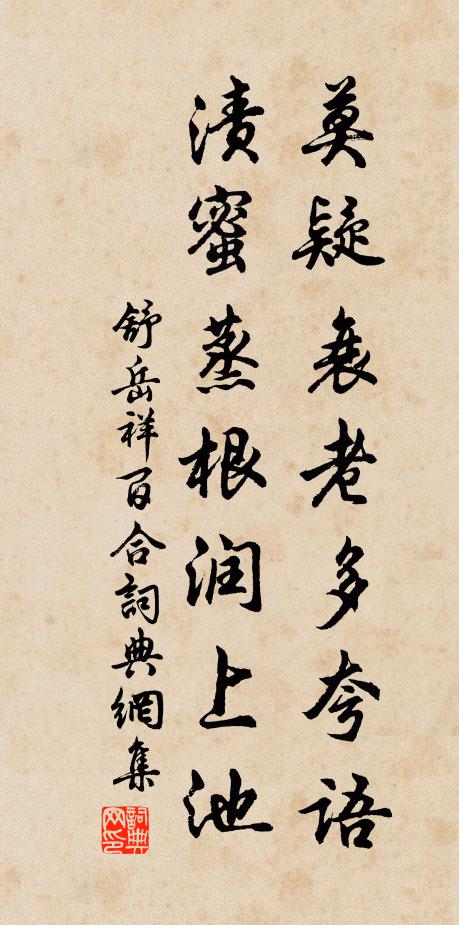 莫疑衰老多夸语
渍蜜蒸根润上池
舒岳祥百合词典網集
詞典網印